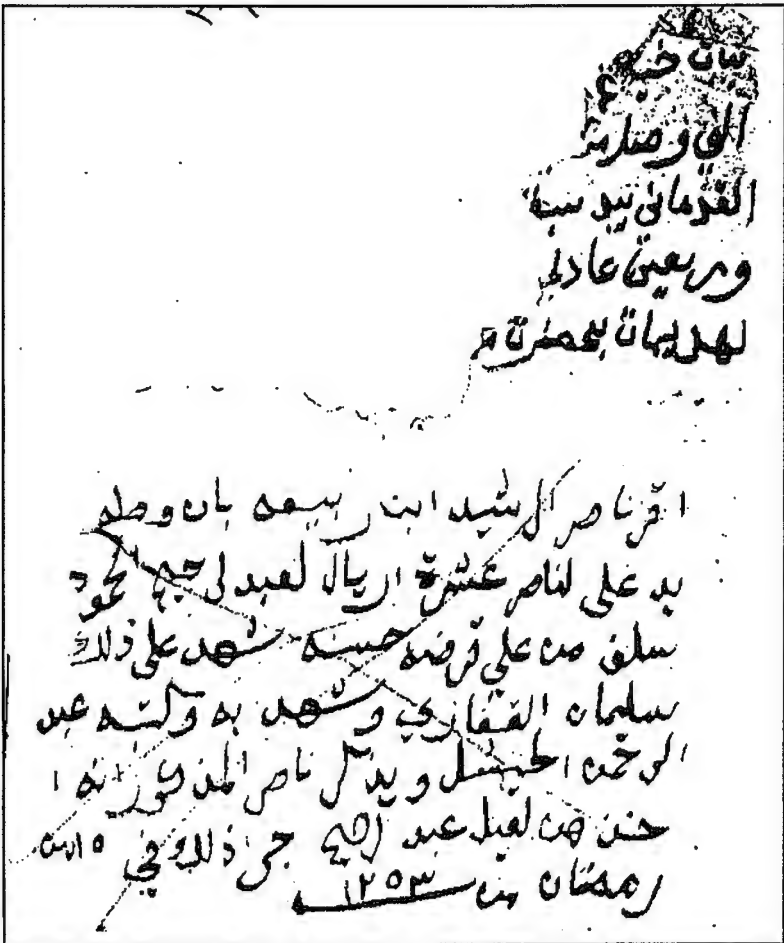 بيان
الي وصل من
القرماني بيد
وربعين عادلي
لهديبان بحضرة
اقر ناصر الرشيد ابن ربيعه بان وصله
بيد علي لناصر عشرة اريال لعبد لرحيم الحمود
سلف من علي قرضه حسنه شهد علي ذلك
سلمان القفاري وشهد به وكتبه عبد
الرحمن الحنيشل ويذكر ناصر المذكور انه ا
خذن من لعيل عبد الرحيم جرى ذلك في ١٥ من
رمضان سنة ١٢٥٣